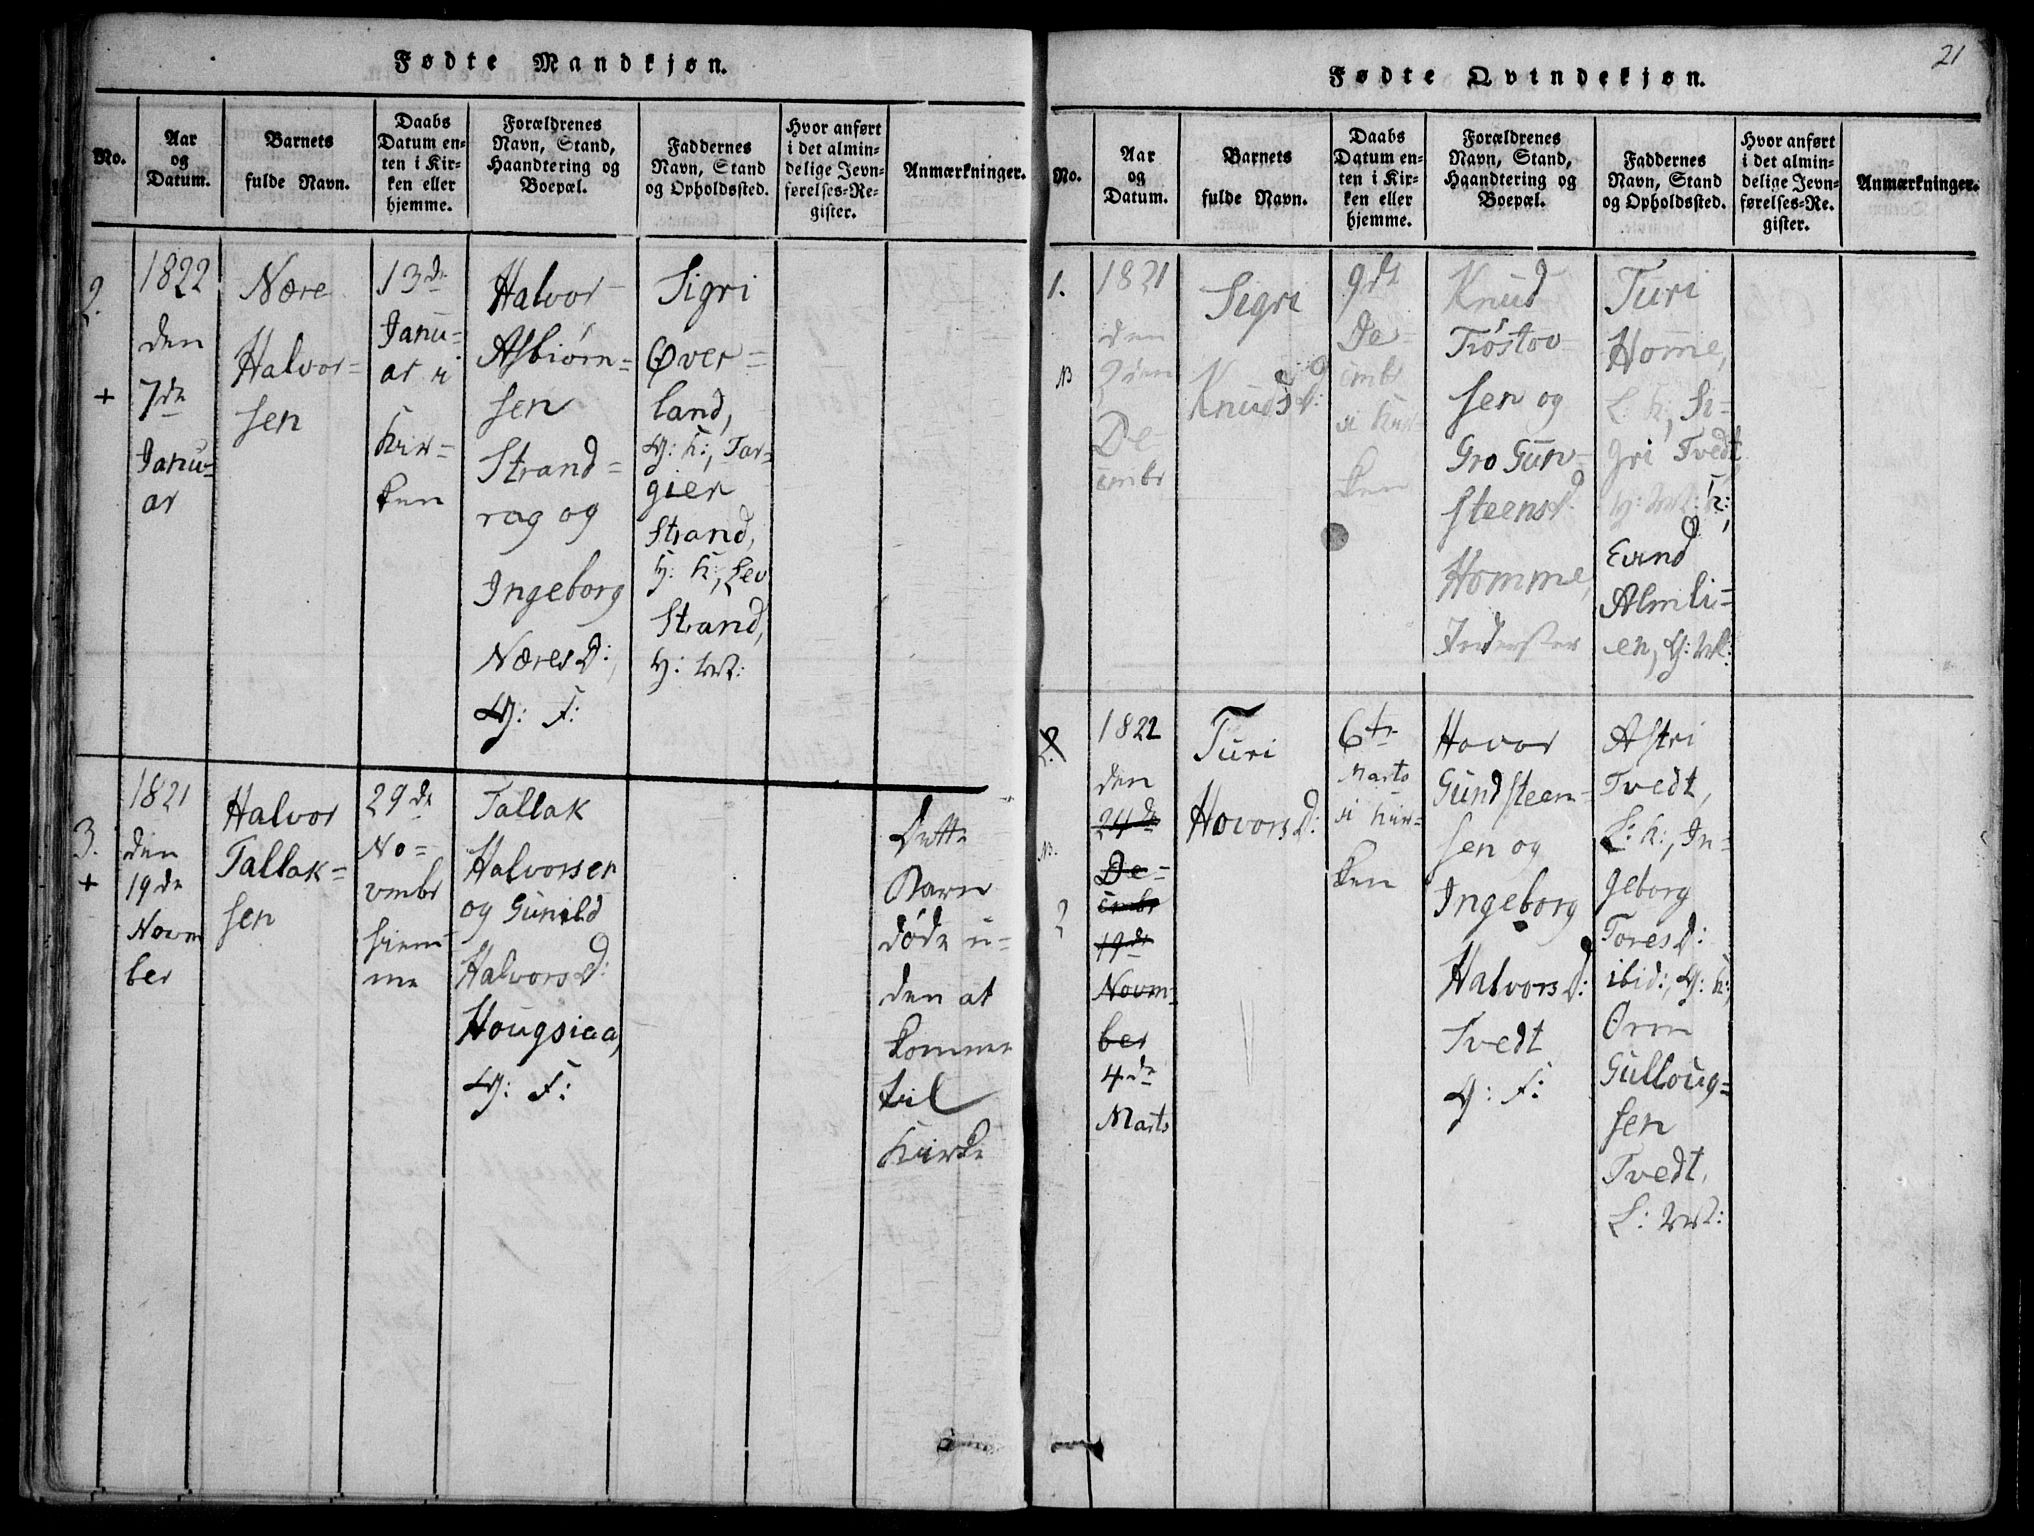 21
Fødte Mandkjøn.
No.
Aar
og
Datum.
Barnets
fulde Navn.
Daabs
Datum en-
ten i Kir-
ken eller
hjemme.
Forældrenes
Navn, Stand,
Haandtering og
Boepæl.
Faddernes
Navn, Stand
og Opholdssted.
Hvor anført
i det almin-
delige Jevn-
førelses-Re-
gister.
Anmærkninger.
2.
+
1822
den
7de
Janu-
ar
Nære
Halvor-
sen
13de
Janu-
ar i
Kir-
ken
Halvor
Asbiørn-
sen
Strand-
rag og
Ingeborg
NæresD:,
G: F:
Sigri
Øver-
land,
G: K:, Tar-
gier
Strand,
G: K:, Lev
Strand,
G: M:
3.
+
1821
den
19de
Novm
ber
Halvor
Tallak-
sen
29de
No-
vmbr
hiem-
me
Tallak
Halvorsen
og Gunild
HalvorsD:
Hougsiaa,
G: F:
Dette
Barn
døde u-
den at
komme
til
Kirke
Fødte Qvindekjøn.
No.
Aar
og
Datum.
Barnets
fulde Navn.
Daabs
Datum en-
ten i Kir-
ken eller
hjemme.
Forældrenes
Navn, Stand,
Haandtering og
Boepæl.
Faddernes
Navn, Stand
og Opholdssted.
Hvor anført
i det almin-
delige Jevn-
førelses-Re-
gister.
Anmærkninger.
1.
NB
1821
den
De-
cmbr
Sigri
KnudsD:
9de
De-
cmbr
i Kir-
ken
Knud
Trøstov-
sen og
Gro Gun-
steensD.
Homme,
Inderster
Turi
Home,
L: K:, Si-
gri Tvedt,
G: M: K:,
Evind
Almli-
en, G: M:
2.
NB.
2
1822
den
24de
De-
cmbr
19de
Novm-
ber
4de
Marts
Turi
HovorsD:
6te
Marts
i Kir-
ken
Hovor
Gundsteen-
sen og
Ingeborg
HalvorsD:
Tvedt
G: F:
Astri
Tvedt,
L: K:, In-
geborg
ToresD:
ibid:, G: K:,
Orm
Gulloug-
sen
Tvedt,
L: M: